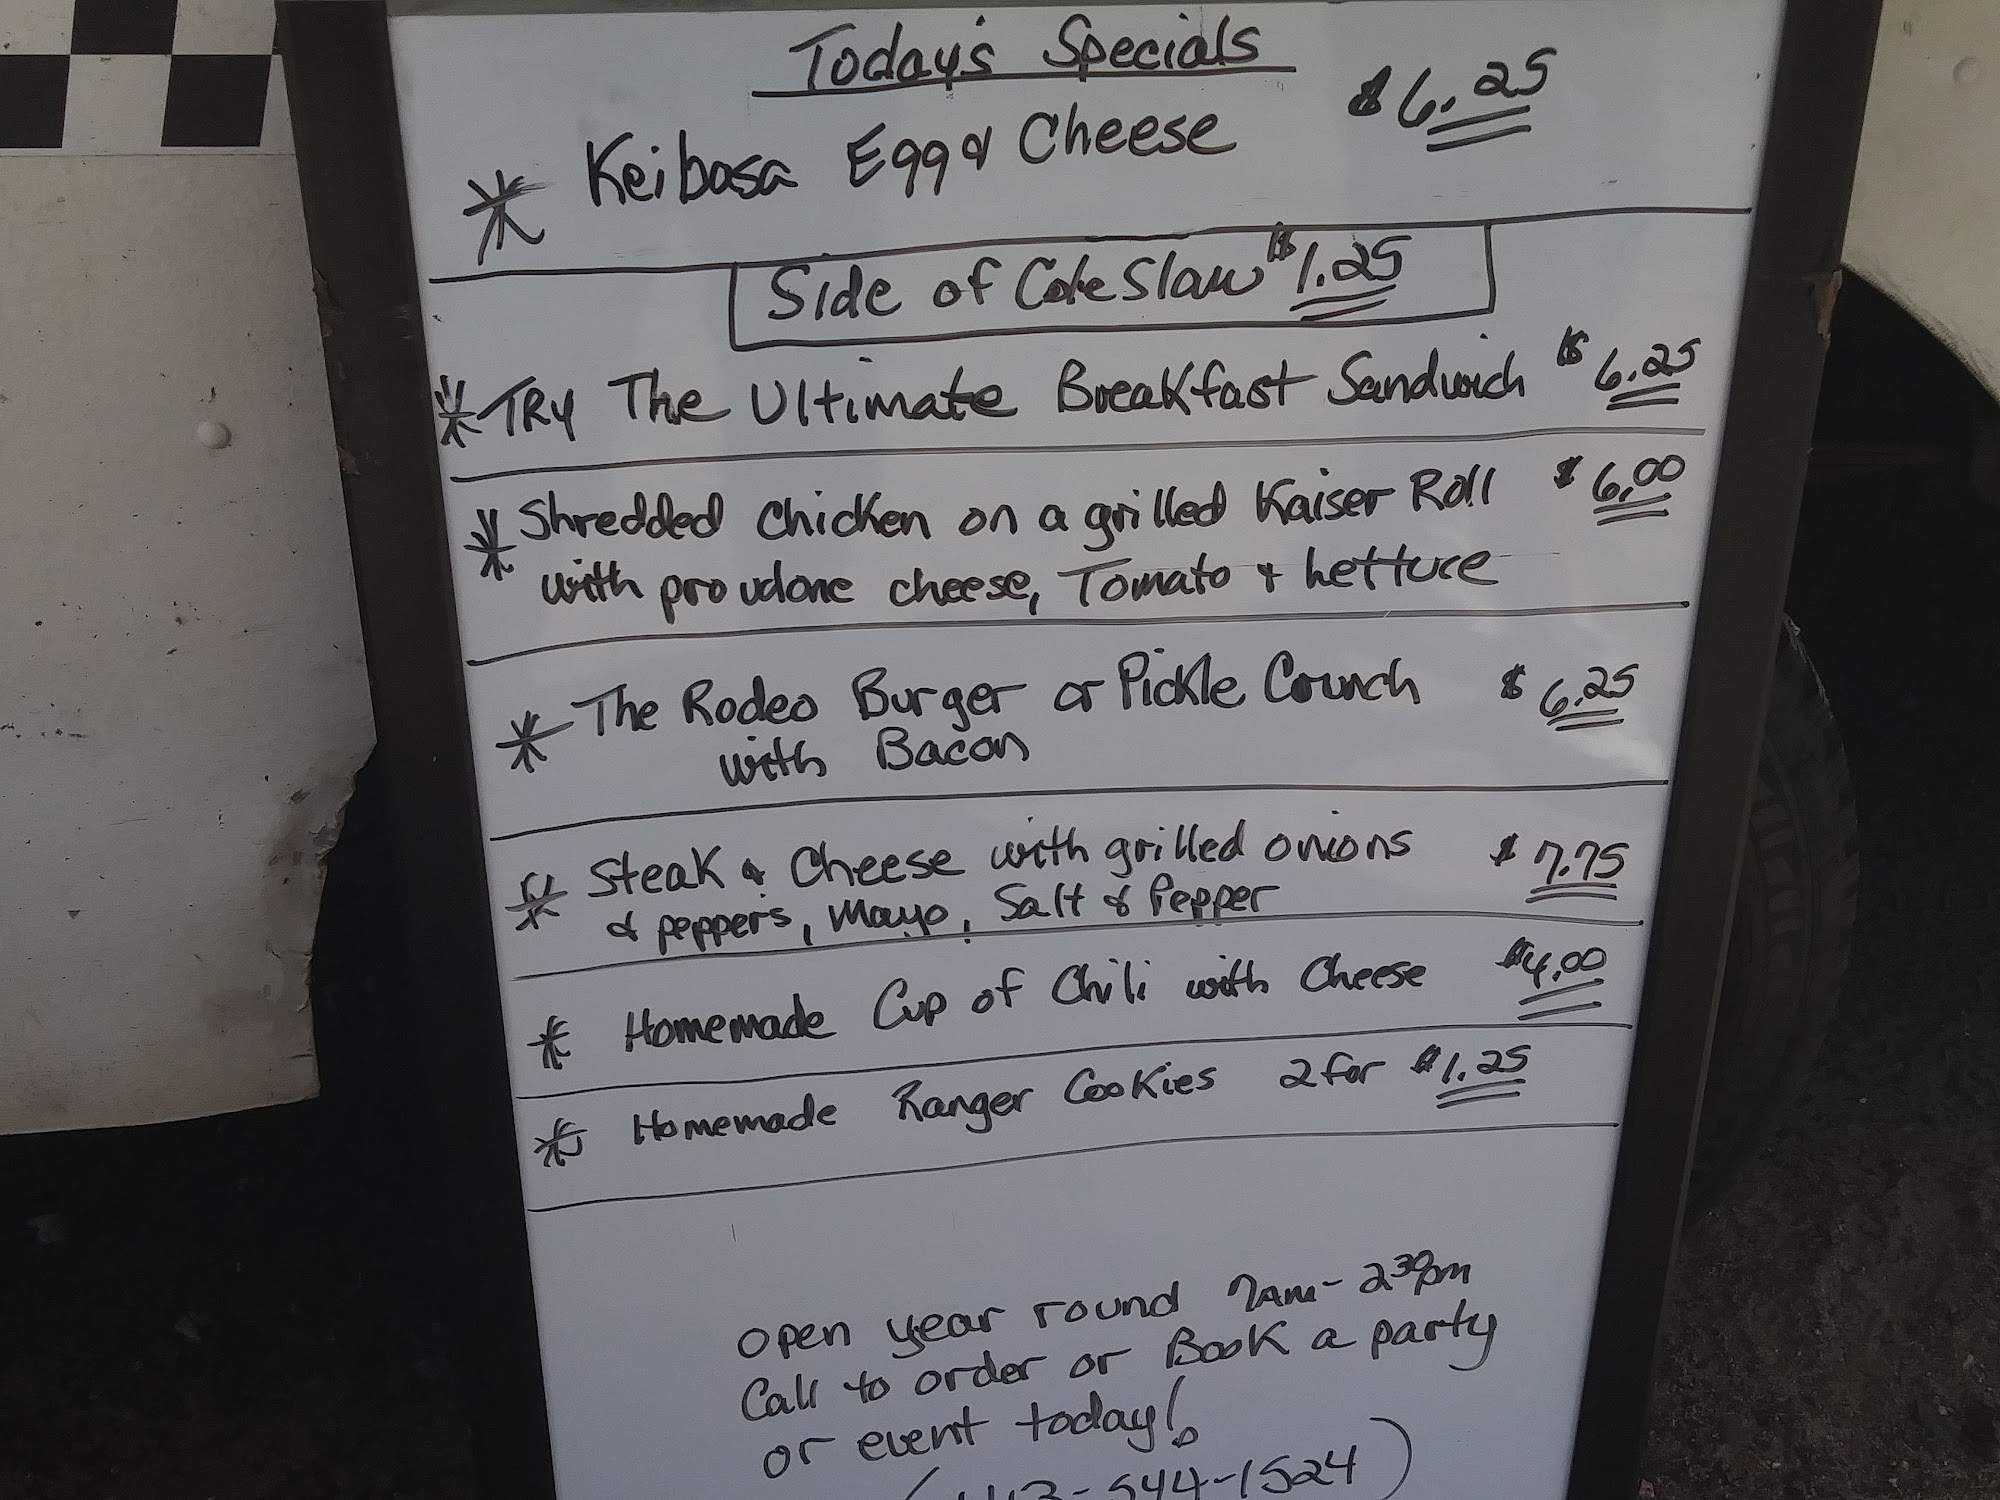 Today's Specials
* Keibasa Egg & Cheese $6.25
Side of Cole Slaw $1.25
* TRY The Ultimate Breakfast Sandwich $6.25
* Shredded Chicken on a grilled Kaiser Roll $6.00
with provolone cheese, Tomato & Lettuce
* The Rodeo Burger or Pickle Crunch $6.25
with Bacon
* Steak & Cheese with grilled onions $7.75
& peppers, Mayo, Salt & Pepper
* Homemade Cup of Chili with Cheese $4.00
* Homemade Ranger Cookies 2 for $1.25
open year round 7am-2:30pm
Call to order or Book a party
or event today!
-544-1524)